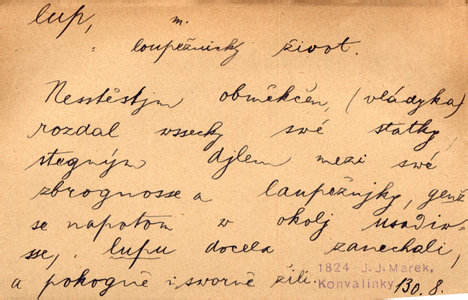 lup, m.
loupežnický život.
Nesstěstjm obměkčen, (vládyka)
rozdal wssecky swé statky
stegným djlem mezi swé
zbrognosse a laupežnjky, genž
se napotom w okolj usadiw-
sse, lupu docela zanechali,
a pokogně i sworně žili.
1824 J. J. Marek,
Konvalinky 130. 8.